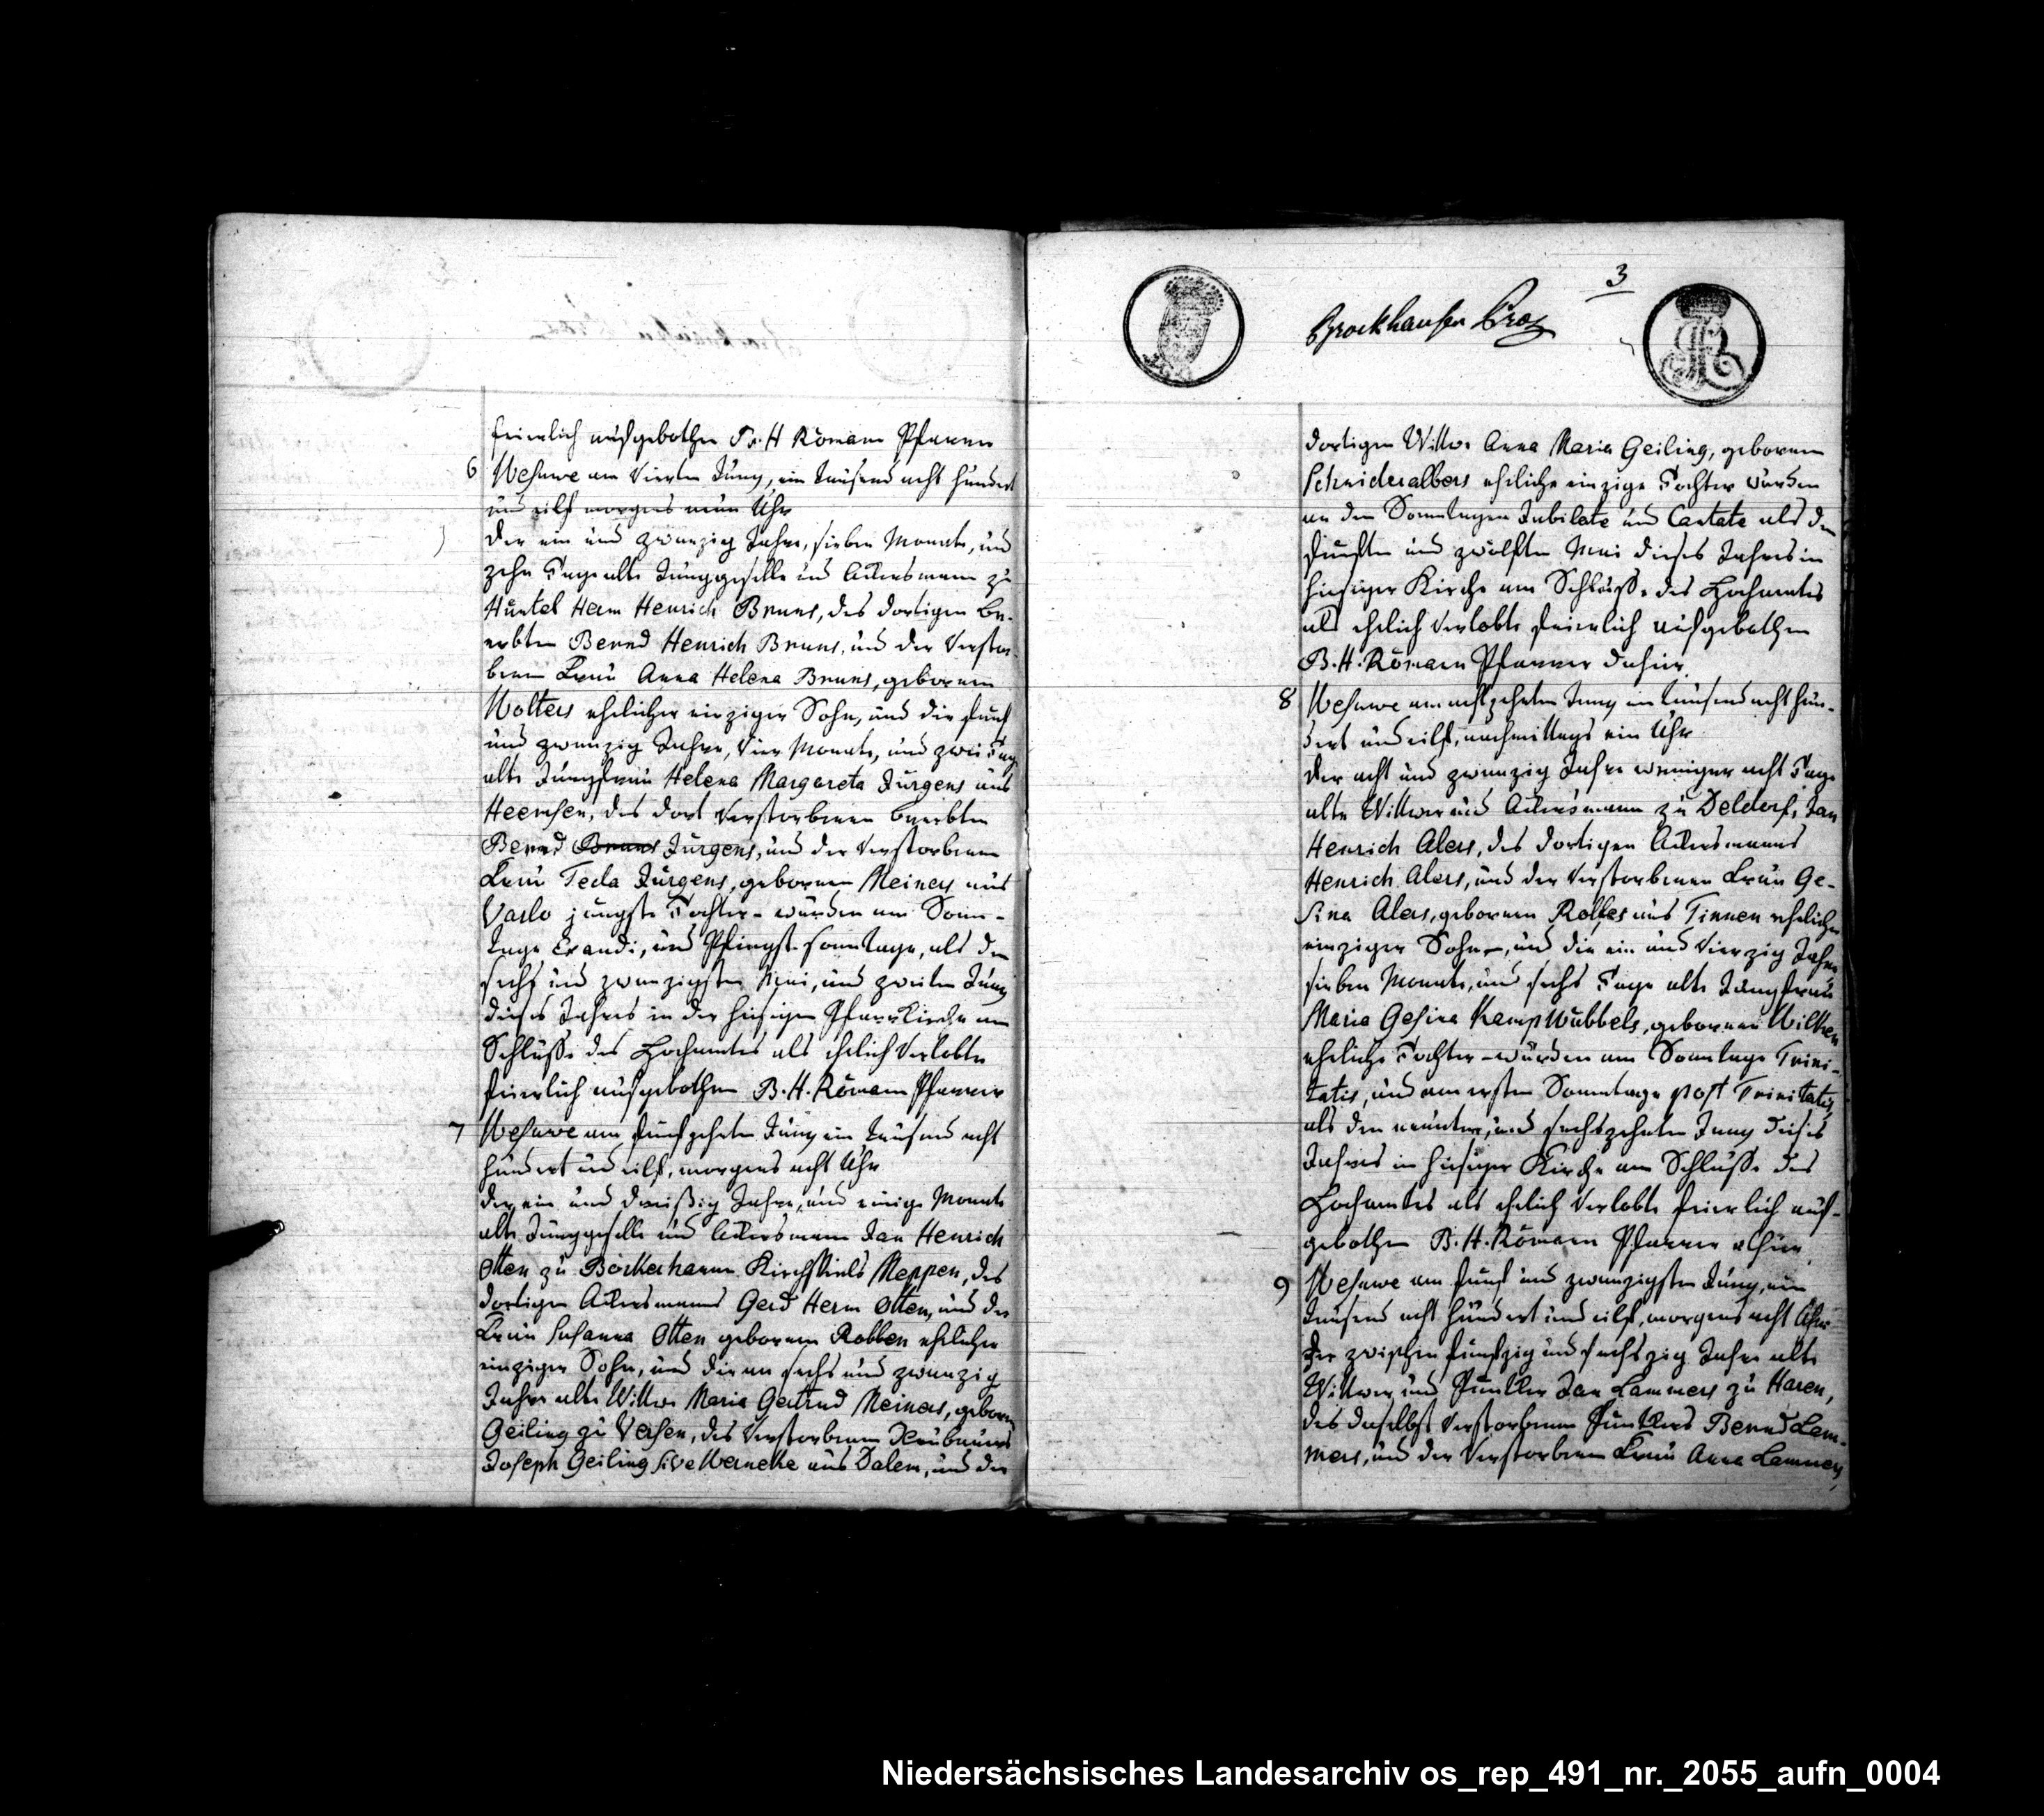 feierlich aufgebothen B. H Römann Pfarrer
6 Wesuwe am vierten Juny, ein tausend acht hundert
und eilf morgens neun Uhr
Der ein und zwanzig Jahre, sieben Monate, und
zehn Tage alte Junggeselle und Ackersmann zu
Huntel Herm Henrich Bruns, des dortigen Be-
erbten Bernd Henrich Bruns, und der verstor-
benen Frau Anna Helena Bruns, gebornen
Wolters ehelicher einziger Sohn, und die fünf
und zwanzig Jahre, vier Monate, und zwei Tag
alte Jungfrau Helena Margareta Jurgens aus
Heemsen, des dort verstorbenen Beerbten
Bernd Bruns Jurgens, und der verstorbenen
Frau Tecla Jurgens, gebornen Meiners aus
Varlo jüngste Tochter - wurden am Sonn-
tage Exaudi, und Pfingst-Sonntage, als den
sechs und zwanzigsten Mai, und zweiten Juny
dieses Jahrs in der hiesigen Pfarrkirche am
Schlusse des Hochamtes als ehelich Verlobte
feierlich aufgebothen B. H. Römann Pfarrer
7 Wesuwe am fünfzehnten Juny ein tausend acht
hundert und eilf, morgens acht Uhr
der ein und dreißig Jahre, und einige Monate
alte Junggeselle und Ackersmann Jan Henrich
Otten zu Bockerhamm Kirchspiels Meppen, des
dortigen Ackersmanns Gerd Herm Otten, und der
Frau Susanna Otten gebornen Robben ehelicher
einziger Sohn, und die an sechs und zwanzig
Jahre alte Wittwe Maria Gertrud Meiners, geborn
Geiling zu Versen, des verstorbenen Neubauers
Joseph Geiling sive Werneke aus Dalem, und der
3
Brockhausen Groz
dortigen Wittwe Anna Maria Geiling, gebornen
Schnideralbers eheliche einzige Tochter wurden
an den Sonntagen Jubilate und Cantate als den
fünften und zwölften Mai dieses Jahres in
hiesiger Kirche am Schlusse des Hochamtes
als ehelich Verlobte feierlich aufgebothen
B. H. Römann Pfarrer dahier
8 Wesuwe am achtzehnten Juny ein tausend acht hun-
dert und eilf, nachmittags ein Uhr
der acht und zwanzig Jahre weniger acht Tage
alte Wittwer und Ackersmann zu Deldorf, Jan
Henrich Alers, des dortigen Ackersmanns
Henrich Alers, und der verstorbenen Frau Ge-
sina Alers, gebornen Rolfes aus Tinnen ehelicher
einziger Sohn -, und die ein und vierzig Jahre
sieben Monate, und sechs Tage alte Jungfrau
Maria Gesina Kamp Wubbels, gebornen Wilken
eheliche Tochter - wurden am Sonntage Trini-
tatis, und am ersten Sonntage post Trinitatis
als den neunten, und sechszehnten Juny dieses
Jahres in hiesiger Kirche am Schlusse des
Hochamtes als ehelich Verlobte feierlich auf-
gebothen B. H. Römann Pfarrer alhier
9 Wesuwe am fünf und zwanzigsten Juny, ein
tausend acht hundert und eilf, morgens acht Uhr
der zwischen fünfzig und sechszig Jahre alte
Wittwer und Püntker Jan Lammers zu Haren,
des daselbst verstorbenen Püntkers Bernd Lam-
mers, und der verstorbenen Frau Anna Lammers,
Niedersächsisches Landesarchiv os_rep_491_nr._2055_aufn_0004